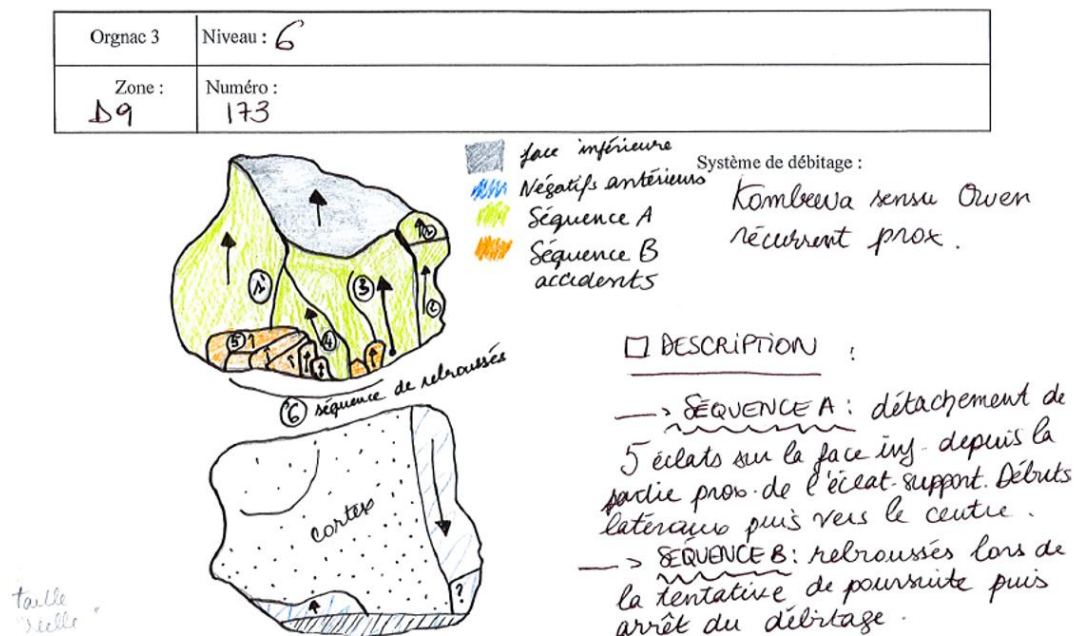 Orgnac 3
Niveau : 6
Zone :
D9
Numéro :
173
face inférieure
Négatifs antérieurs
Séquence A
Séquence B
accidents
Système de débitage :
Kombewa sensu Owen
récurrent prox.
1
2
2
3
4
5
6 séquence de rebroussés
cortex
?
DESCRIPTION :
—> SÉQUENCE A : détachement de
5 éclats sur la face inf. depuis la
partie prox. de l'éclat-support. Débuts
latéraux puis vers le centre.
—> SÉQUENCE B : rebroussés lors de
la tentative de poursuite puis
arrêt du débitage.
taille
réelle